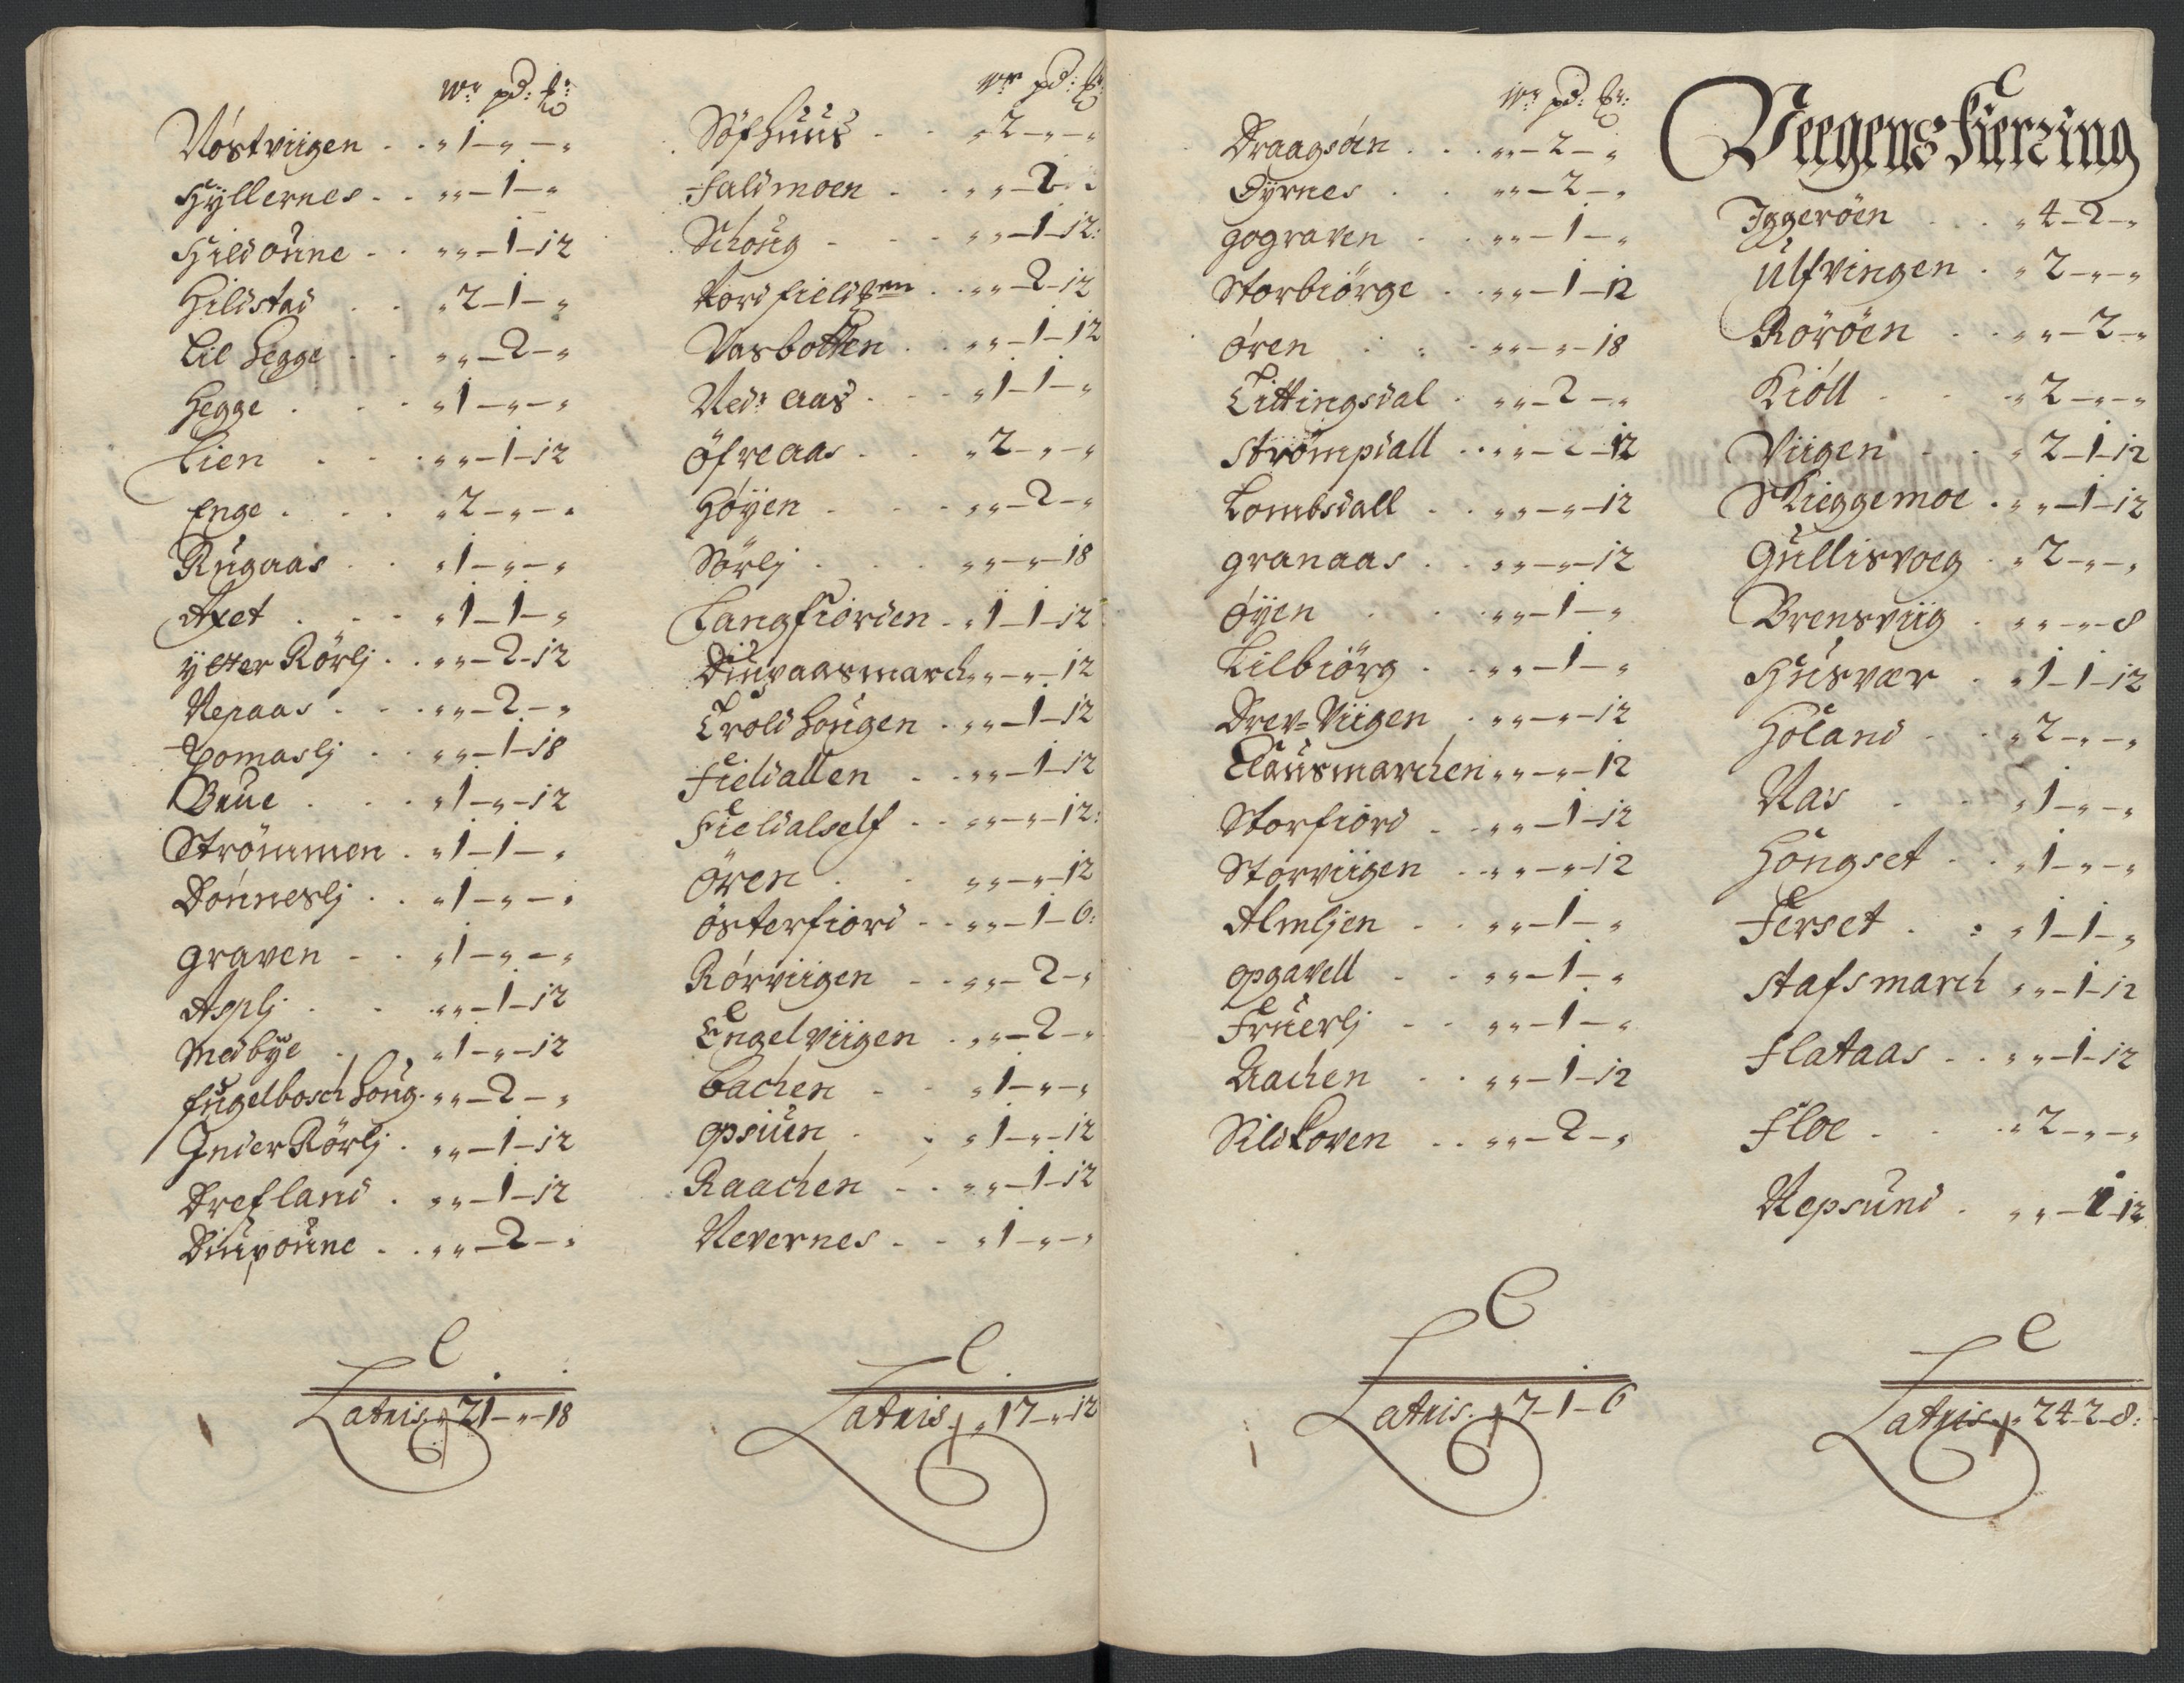 Wr pd: Lr:
Nöstviigen . . „ 1 – „ – „
Hyllernes . . „ „ – 1 – „
Hildoune . . „ „ – 1 – 12
Hildstad . . „ 2 – 1 – „
Lil Hegge . . „ „ – 2 – „
Hegge . . . „ 1 – „ – „
Lien . . . „ „ – 1 – 12
Enge . . . „ 2 – „ – „
Rugaas . . „ 1 – „ – „
Axet . . . „ 1 – 1 – „
Ytter Rörlj . . „ „ – 2 – 12
Nepaas . . . „ „ – 2 – „
Tomaslj . . „ „ – 1 – 18
Baue . . . „ 1 – „ – 12
Strömmen . „ 1 – 1 – „
Dönneslj . . „ 1 – „ – „
Graven . . „ 1 – „ – „
Asplj . . „ „ – 1 – 12
Medbye . „ 1 – „ – 12
Fugelbosch houg . „ „ – 2 – „
Inder Rörlj . „ „ – 1 – 12
Drefland . „ „ – 1 – 12
Diupoune . . „ „ – 2 – „
Latris . „ 21 – „ – 18
Wr pd: Lr:
Söfhuus . . „ 2 – „ – „
Faldmoen . . „ „ – 2 – „
Schoug . . . „ „ – 1 – 12:
Nordfieldgen . „ „ – 2 – 12
Vasbotten . „ „ – 1 – 12
Nedr Aas . . „ 1 – 1 – „
Öfre Aas . . „ 2 – „ – „
Höyen . . . „ „ – 2 – „
Sörlj . . . „ „ – „ – 18
Langfiorden . „ 1 – 1 – 12
Diupaasmarch „ „ – „ – 12
Troldhougen . „ „ – 1 – 12
Fieldallen . . „ „ – 1 – 12
Fieldalself . . „ „ – „ – 12:
Ören . . „ „ – „ – 12
Österfiord . . „ „ – 1 – 6:
Rörviigen . . „ „ – 2 – „
Engelviigen . „ „ – 2 – „
Bachen . . „ 1 – „ – „
Opsiuen . . „ 1 – „ – 12
Raachen . . „ „ – 1 – 12
Nevernes . . „ 1 – „ – „
Latris . „ 17 – „ – 12
Wr pd: Lr:
Draagsöen . . . „ „ – 2 – „
Oyrnes . . „ „ – 2 – „
Gograven . „ „ – 1 – „
Storbiörge . „ „ – 1 – 12
Ören . . „ „ – „ – 18
Tittingsdal . „ „ – 2 – „
Strömpdall . . „ „ – 2 – 12
Lombsdall . . „ „ – „ – 12
Granaas . . „ „ – „ – 12
Öyen . . „ „ – 1 – „
Lilbiörg . . „ „ – 1 – „
Drev=Viigen . „ „ – „ – 12
Clausmarchen „ „ – „ – 12
Storfiord . „ „ – 1 – 12
Storviigen . „ „ – „ – 12
Almljen . . „ „ – 1 – „
Opgavell . . „ „ – 1 – „
Fruerlj . . „ „ – 1 – „
Aachen . . „ „ – 1 – 12
Sildkoven . . „ „ – 2 – „
Latris . „ 7 – 1 – 6
Veegens Fierring
Iggeröen . . „ 4 – 2 – „
Ulfvingen . „ 2 – „ – „
Roröen . . „ „ – 2 – „
Kiöll . . „ 2 – „ – „
Viigen . . „ 2 – 1 – 12
Skieggemoe . „ „ – 1 – 12
Gullisvoeg . „ 2 – „ – „
Brensviig . „ „ – „ – 8
Husvær . „ 1 – 1 – 12
Höland . . „ 2 – „ – „
Nas . . „ 1 – „ – „
Höngset . . „ 1 – „ – „
Ferset . . „ 1 – 1 – „
Stafsmarch „ „ – 1 – 12
Flataas . . „ „ – 1 – 12
Floe . . . „ 2 – „ – „
Nepsund . „ „ – 1 – 12
Latris . „ 24 – 2 – 8: